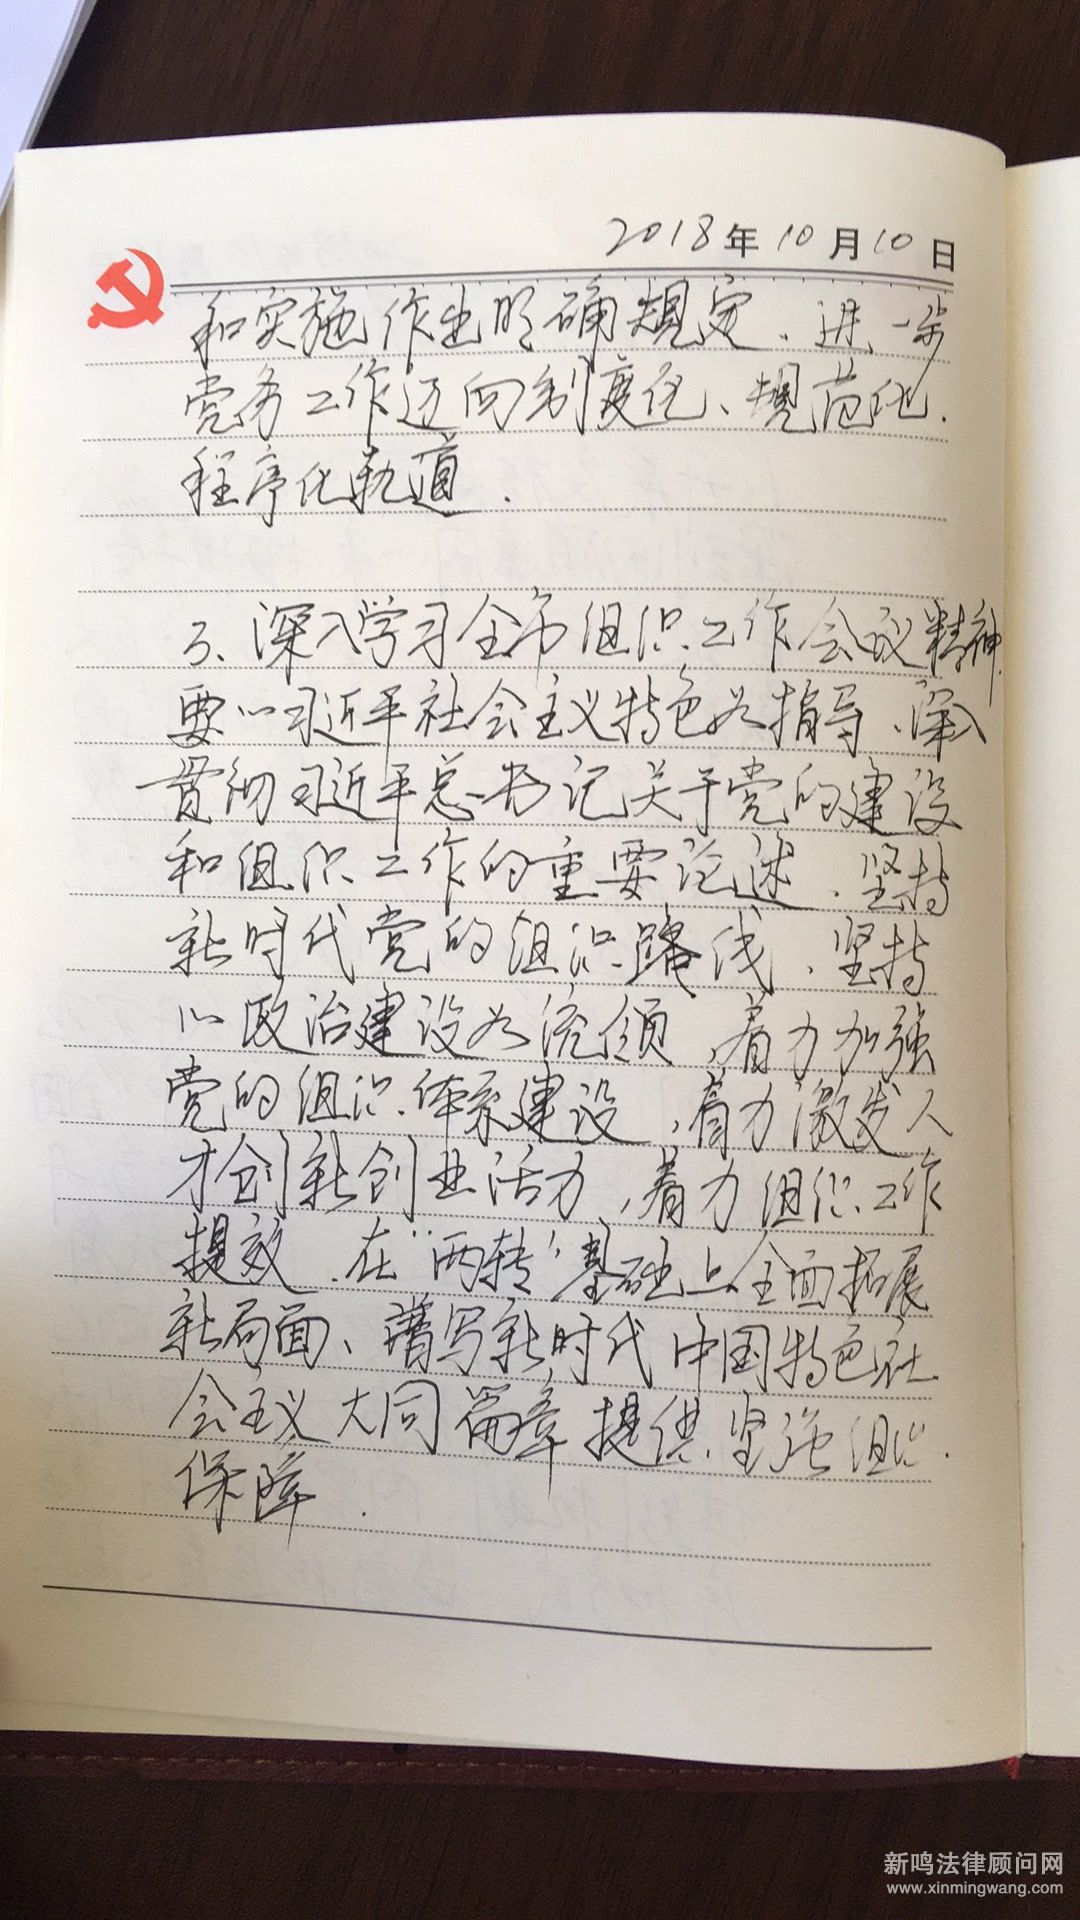 2018年10月10日
和实施作出明确规定、进一步
党务工作迈向制度化、规范化.
程序化轨道.
3、深入学习全市组织工作会议精神.
要以习近平社会主义特色为指导、深入
贯彻习近平总书记关于党的建设
和组织工作的重要论述、坚持
新时代党的组织路线、坚持
以政治建设为统领、着力加强
党的组织体系建设、着力激发人
才创新创业活力、着力组织工作
提效、在“两转”基础上全面拓展
新局面、谱写新时代中国特色社
会主义大同篇章提供坚强组织.
保障.
新鸣法律顾问网
www.xinmingwang.com